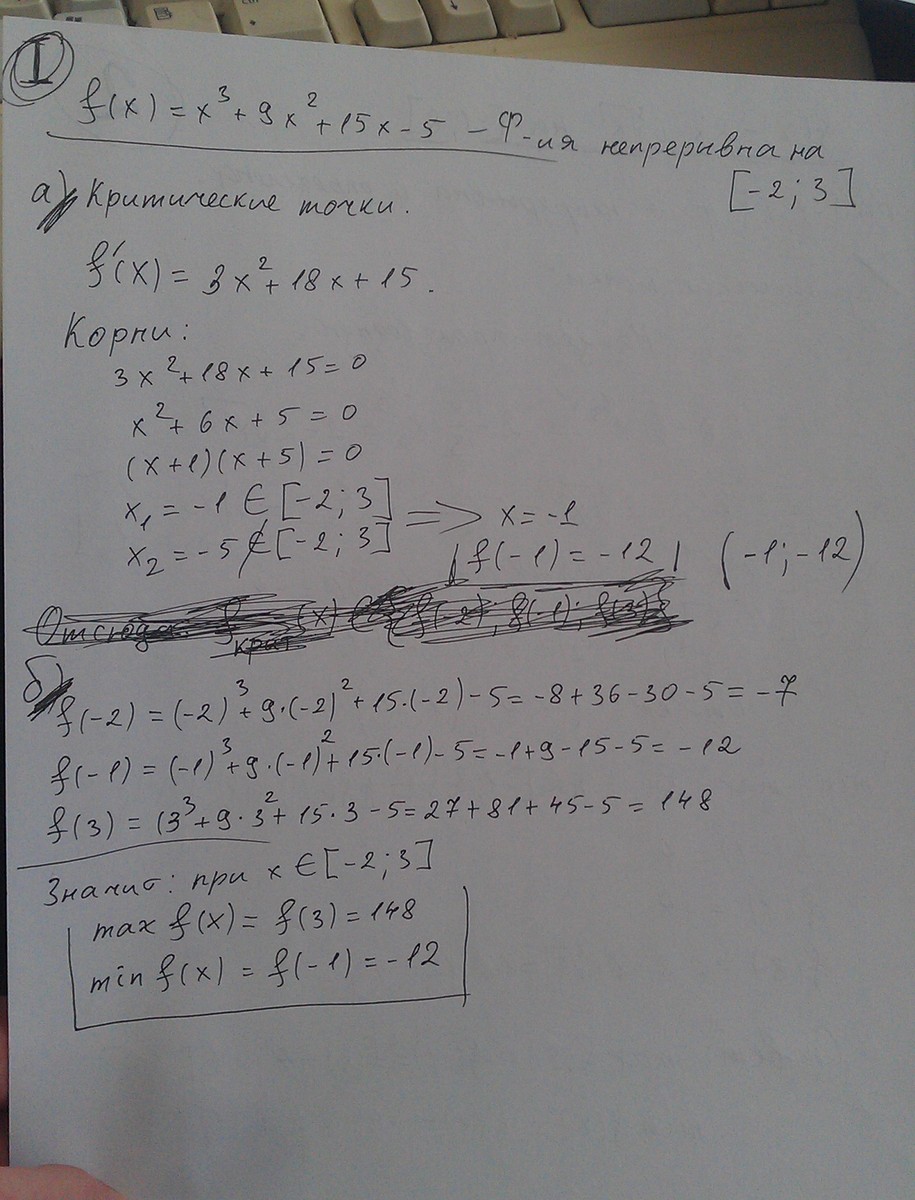 I
f(x) = x³ + 9x² + 15x - 5 - ф-ия непреривна на
[-2; 3]
а) Критические точки.
f'(x) = 3x² + 18x + 15.
Корни:
3x² + 18x + 15 = 0
x² + 6x + 5 = 0
(x+1)(x+5) = 0
x₁ = -1 ∈ [-2; 3] => x = -1
x₂ = -5 ∉ [-2; 3] | f(-1) = -12 | (-1; -12)
Отсюда: f крит (x) ∈ {f(-2); f(-1); f(3)}
б) f(-2) = (-2)³ + 9·(-2)² + 15·(-2) - 5 = -8 + 36 - 30 - 5 = -7
f(-1) = (-1)³ + 9·(-1)² + 15·(-1) - 5 = -1 + 9 - 15 - 5 = -12
f(3) = (3³ + 9·3² + 15·3 - 5 = 27 + 81 + 45 - 5 = 148
Значит: при x ∈ [-2; 3]
max f(x) = f(3) = 148
min f(x) = f(-1) = -12